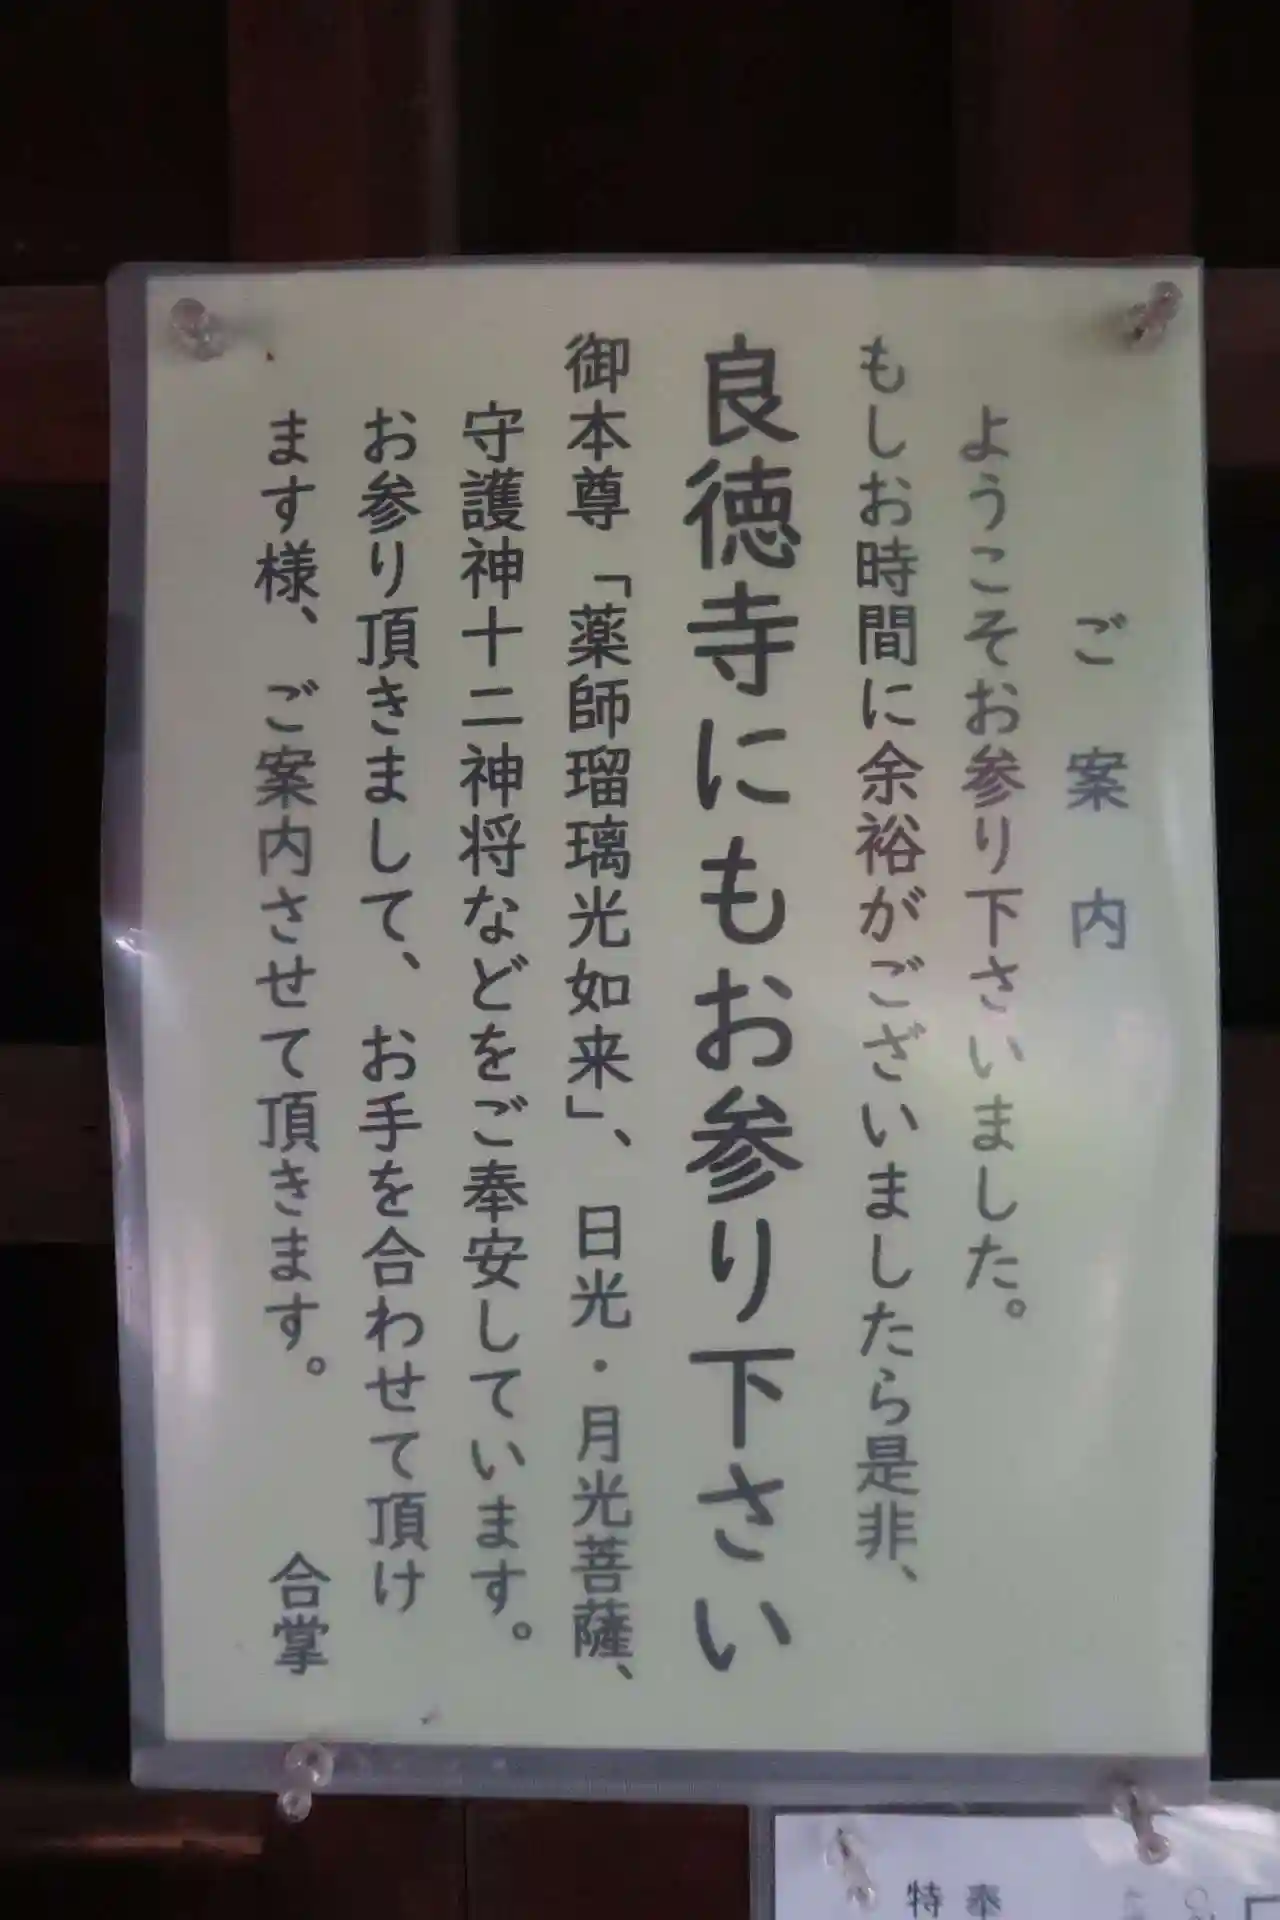 ご案内
ようこそお参り下さいました。
もしお時間に余裕がございましたら是非、
良徳寺にもお参り下さい
御本尊「薬師瑠璃光如来」、日光・月光菩薩、
守護神十二神将などをご奉安しています。
お参り頂きまして、お手を合わせて頂け
ます様、ご案内させて頂きます。 合掌
奉
特